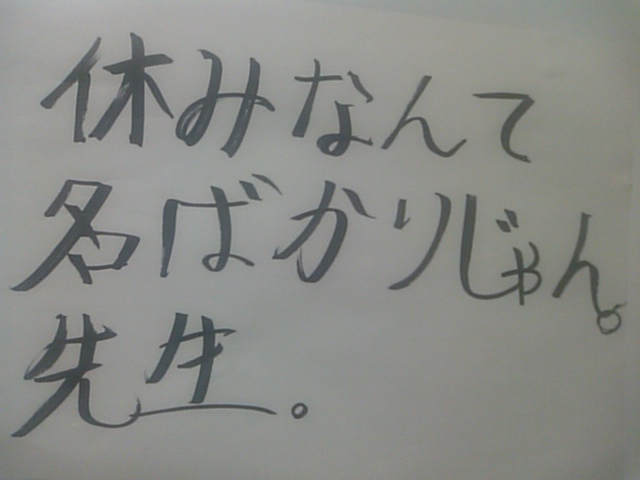 休みなんて
名ばかりじゃん。
先生。